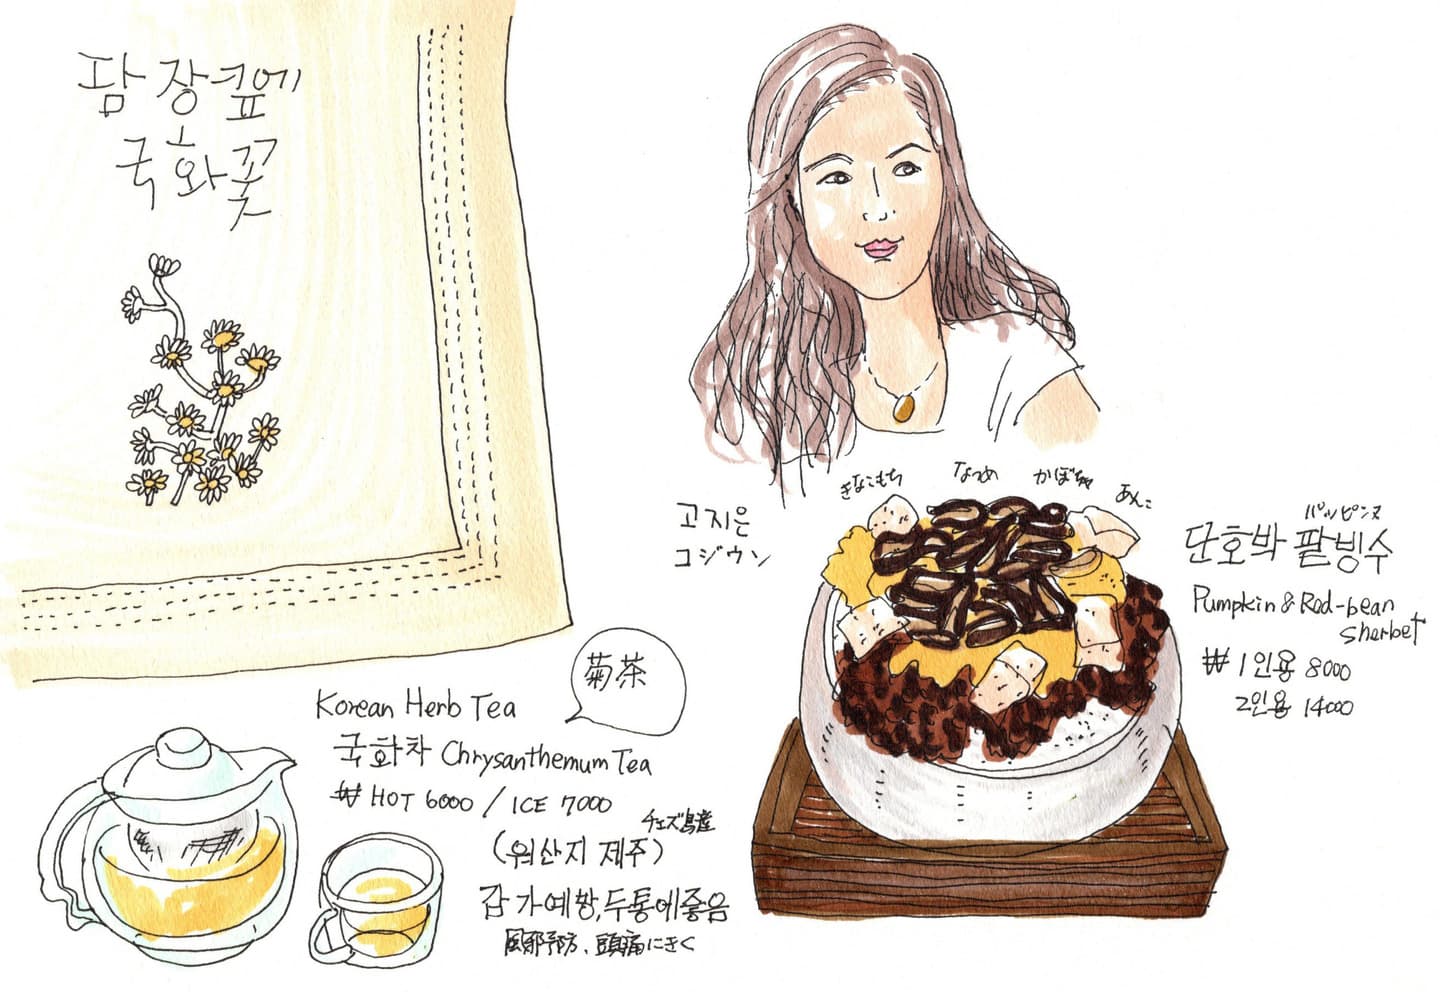 담장옆에
국화꽃
고지은
コジウン
きなこもち
なつめ
かぼちゃ
あんこ
パッピンス
단호박 팥빙수
Pumpkin & Red-bean
Sherbet
₩ 1인용 8000
2인용 14000
菊茶
Korean Herb Tea
국화차 Chrysanthemum Tea
₩ HOT 6000 / ICE 7000
チェズ島産
(원산지 제주)
감가예방, 두통에좋음
風邪予防、頭痛にきく